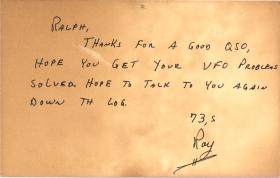 RALPH,
THANKS FOR A GOOD QSO,
HOPE YOU GET YOUR VFO PROBLEMS
SOLVED. HOPE TO TALK TO YOU AGAIN
DOWN TH LOG.
73,S
Ray